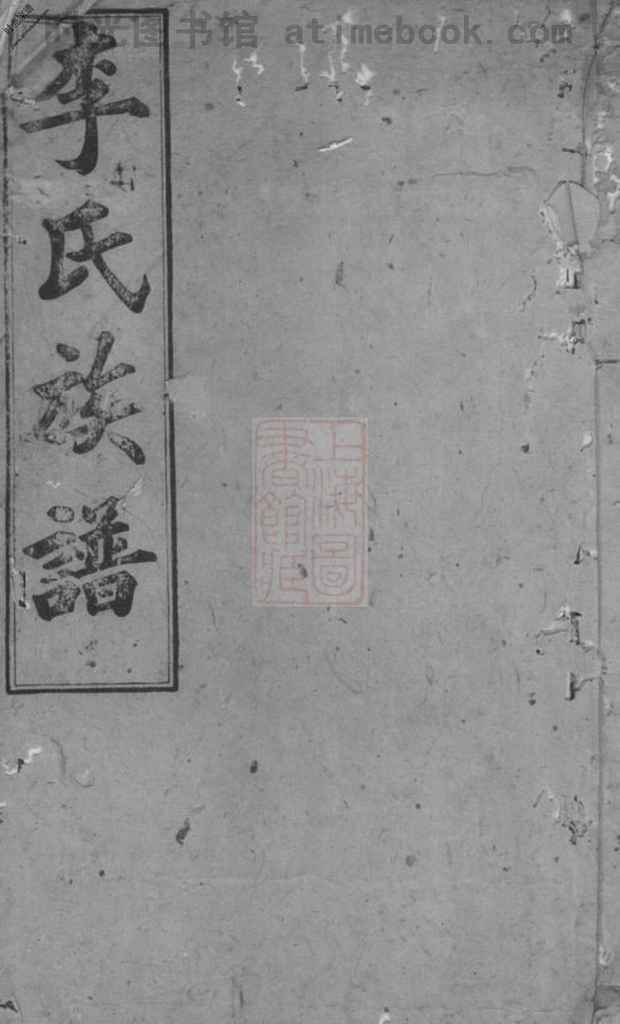 时光图书馆 atimebook.com
李氏族譜
上海圖
書館藏